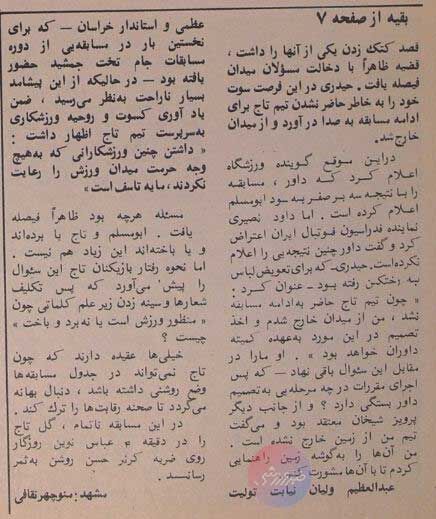 بقیه از صفحه ۷
قصد کتک زدن یکی از آنها را داشت ،
قضیه ظاهراً با دخالت مسؤلان میدان
فیصله یافت . حیدری در این فرصت سوت
خود را به خاطر حاضر نشدن تیم تاج برای
ادامه مسابقه به صدا در آورد و از میدان
خارج شد.
دراین موقع گوینده ورزشگاه
اعلام کرد که داور ، مسابقه
را با نتیجه سه بر صفر به سود ابومسلم
اعلام کرده است . اما داود نصیری
نماینده فدراسیون فوتبال ایران اعتراض
کرد و گفت داور چنین نتیجه‌یی را اعلام
نکرده‌است. حیدری، که برای تعویض لباس
به رختکن رفته بود - عنوان کرد :
« چون تیم تاج حاضر به ادامه مسابقه
نشد ، من از میدان خارج شدم و اخذ
تصمیم در این مورد به‌عهده کمیته
داوران خواهد بود » . او مارا در
مقابل این سئوال باقی نهاد — که پس
اجرای مقررات در چه مرحله‌یی به تصمیم
داور بستگی دارد ؟ و از جانب دیگر
پرویز شیخان معتقد بود و می‌گفت
تیم من از زمین خارج نشده است .
من آن‌ها را به‌گوشه زمین راهنمایی
کردم تا با آن‌ها مشورت کنم
عبدالعظیم ولیان نیابت تولیت
عظمی و استاندار خراسان — که برای
نخستین بار در مسابقه‌یی از دوره
مسابقات جام تخت جمشید حضور
یافته بود — در حالیکه از این پیشامد
بسیار ناراحت به‌نظر می‌رسید ، ضمن
یاد آوری کسوت و روحیه ورزشکاری
به‌سرپرست تیم تاج اظهار داشت :
« داشتن چنین ورزشکارانی که به‌هیچ
وجه حرمت میدان ورزش را رعایت
نکردند، مایه تاسف است »
مسئله هرچه بود ظاهراً فیصله
یافت . ابومسلم و تاج با برده‌اند
و یا باخته‌اند این زیاد هم نیست .
اما نحوه رفتار بازیکنان تاج این سئوال
را پیش می‌آورد که پس تکلیف
شعارها و سینه زدن زیر علم کلماتی چون
« منظور ورزش است یا نه‌برد و باخت »
چیست ؟
خیلی‌ها عقیده دارند که چون
تاج نمی‌تواند در جدول مسابقه‌ها
وضع روشنی داشته باشد ، دنبال بهانه
می‌گردد تا صحنه رقابت‌ها را ترك کند .
در این مسابقه ناتمام ، گل تاج
را در دقیقه ۴ عباس نوین روزگار
روی ضربه کرنر حسن روشن به‌ثمر
رسانید .
مشهد : منوچهر ثقافی